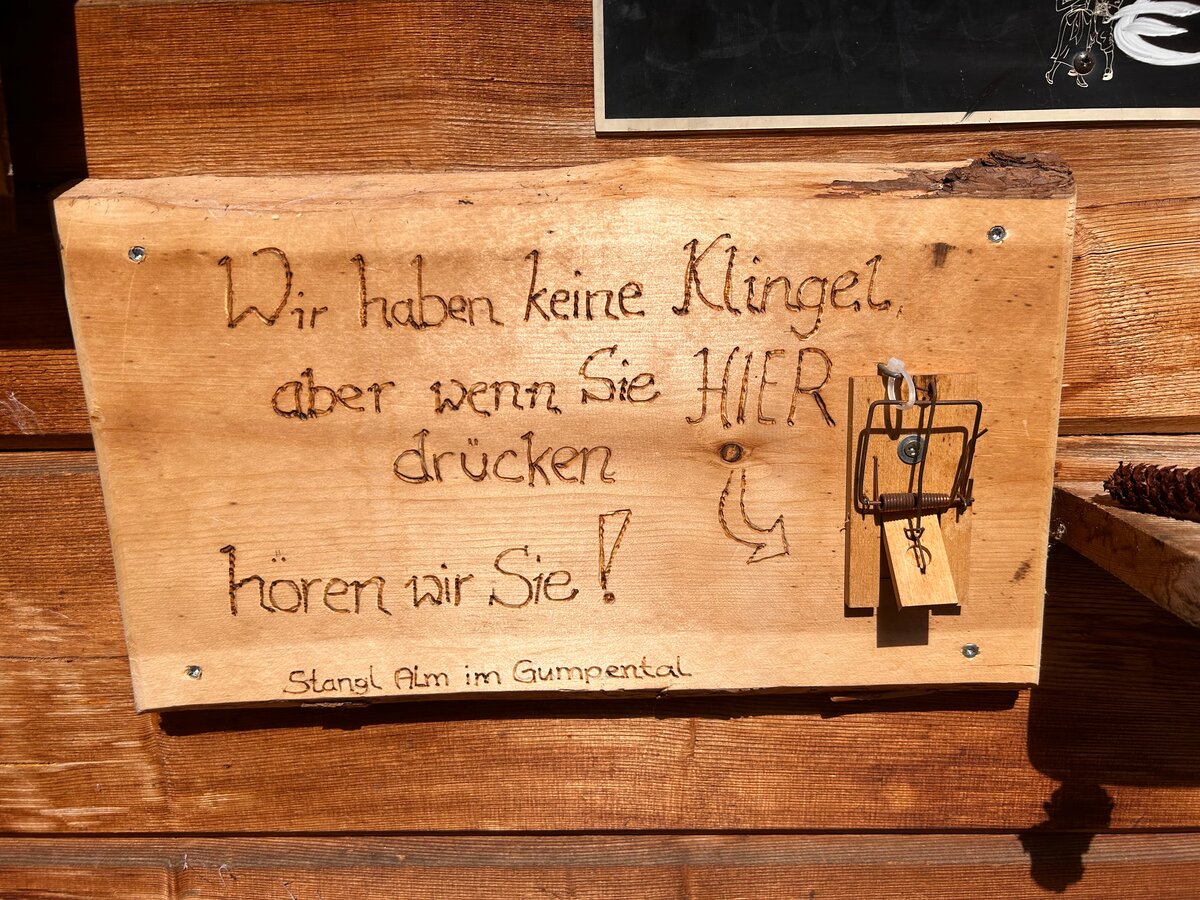 Wir haben keine Klingel,
aber wenn Sie HIER
drücken
hören wir Sie!
Stangl Alm im Gumpental